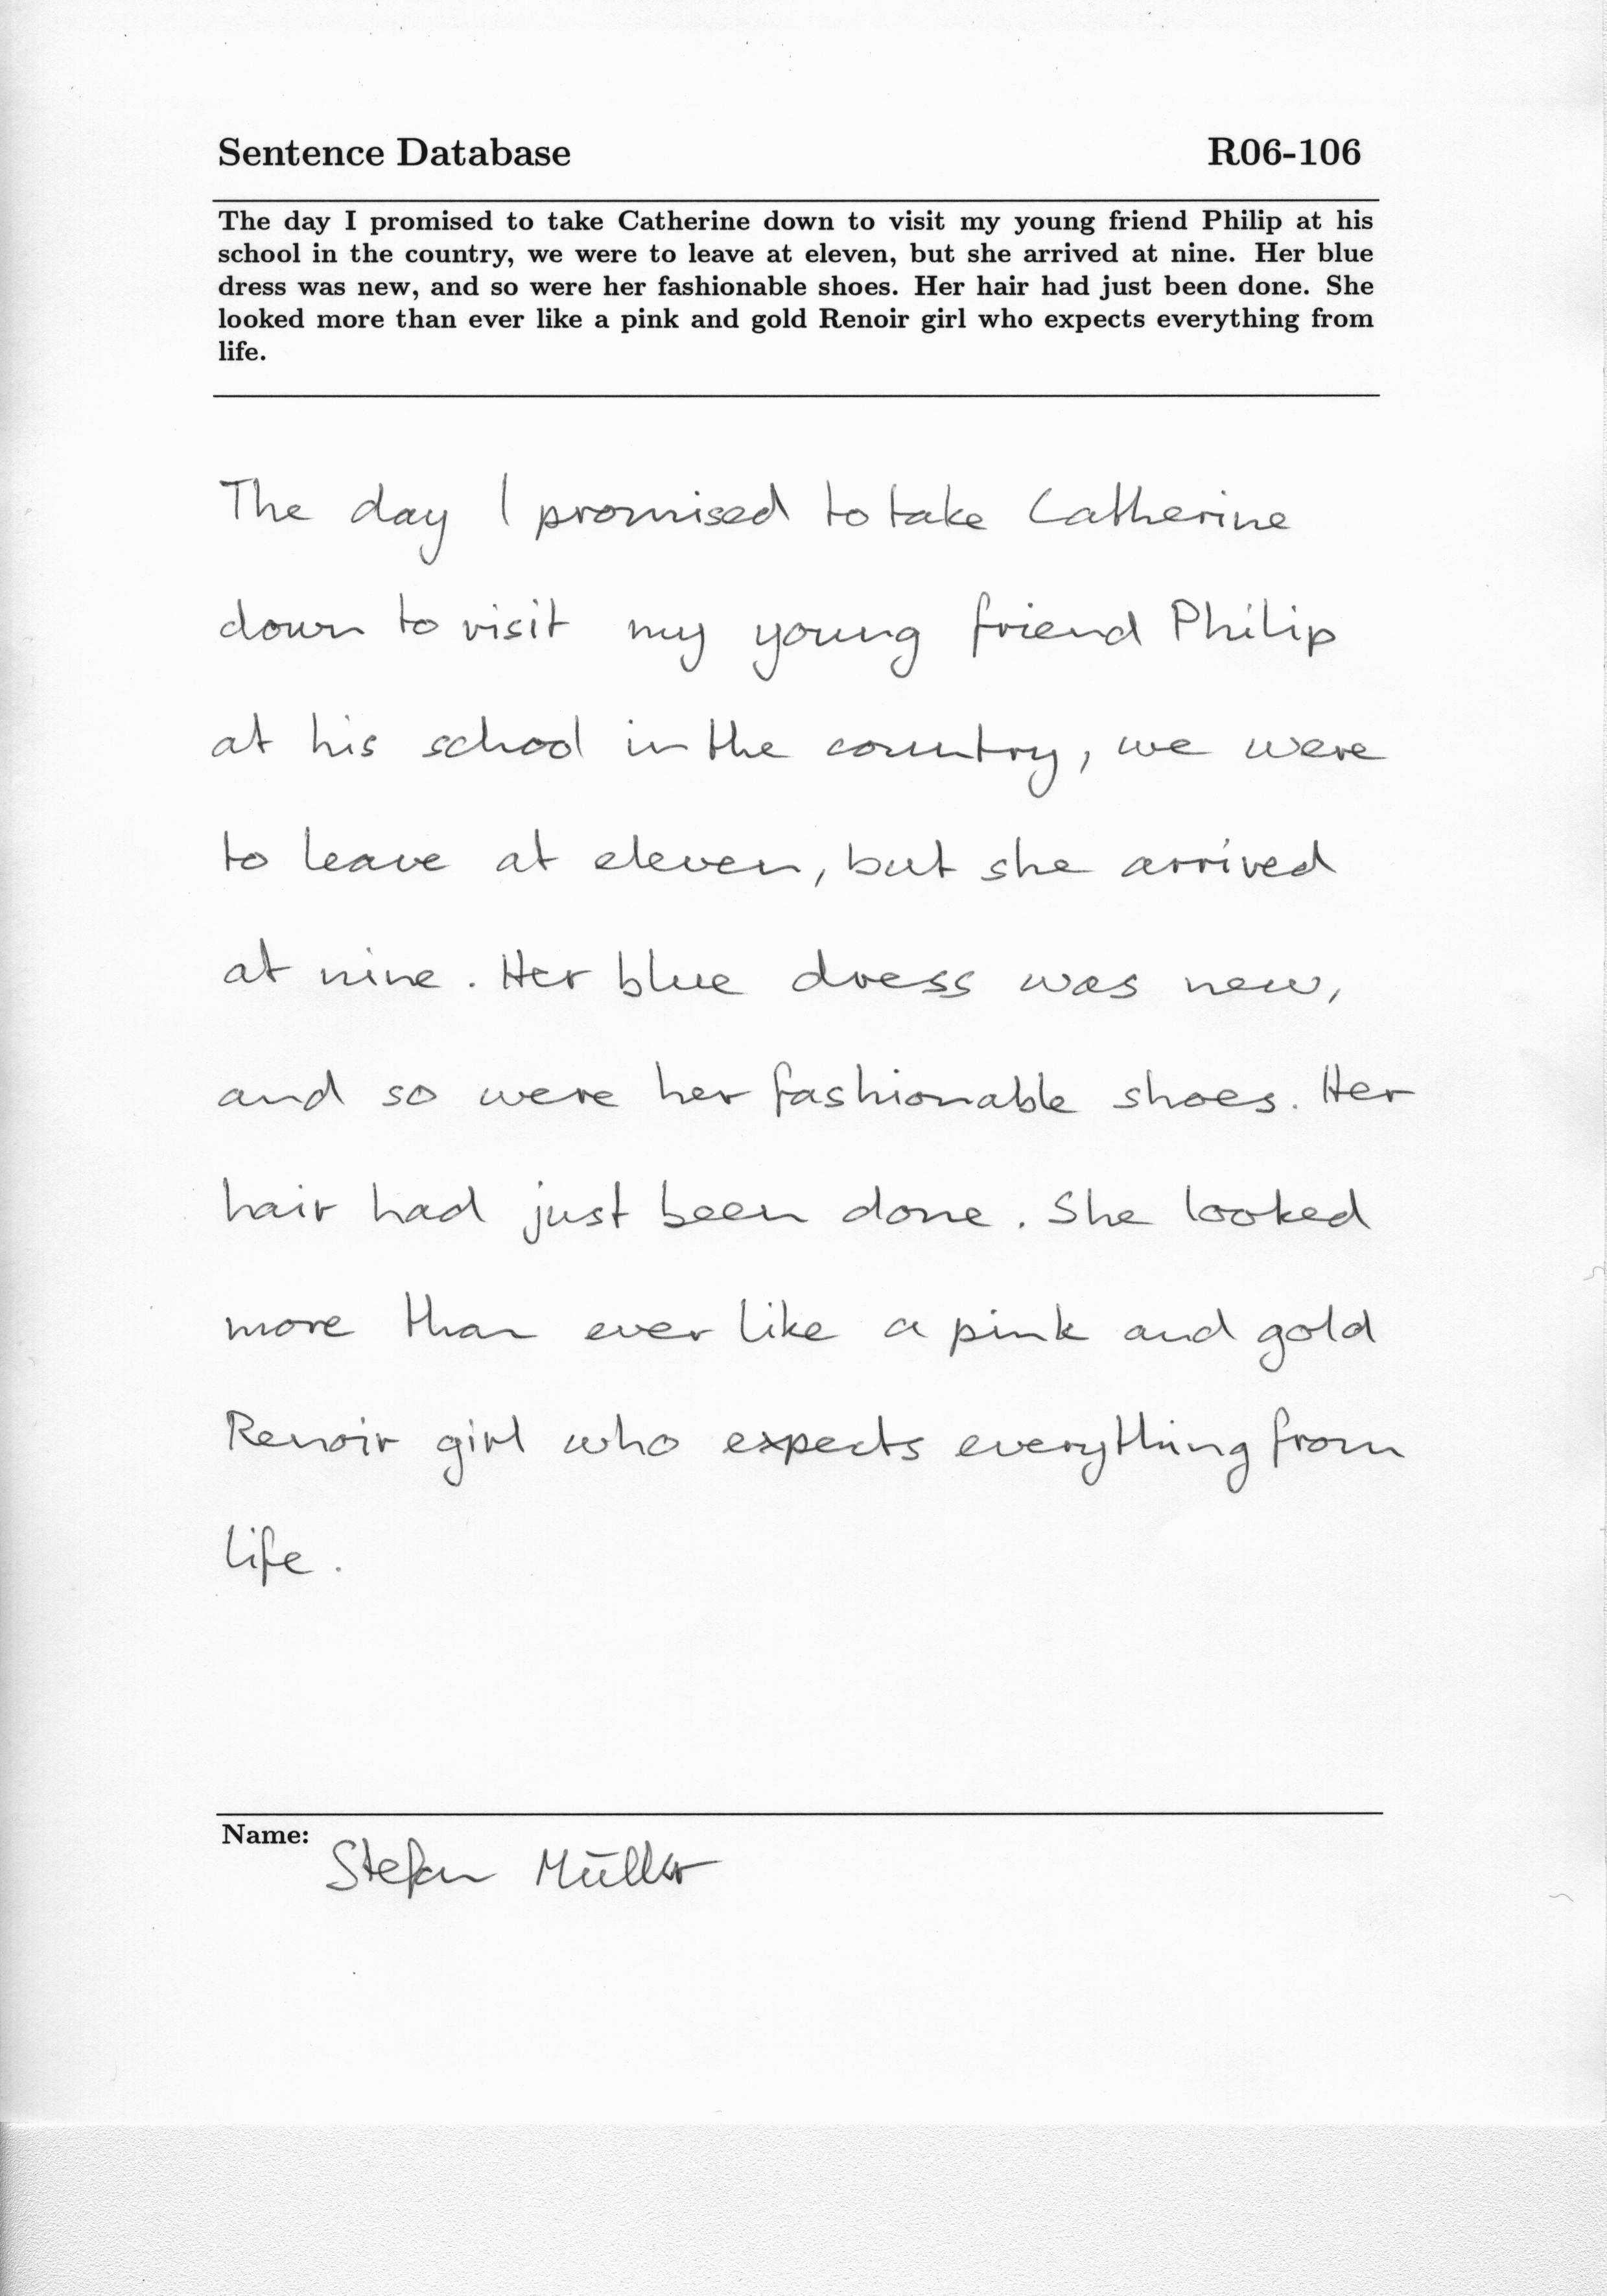 Sentence Database R06-106
The day I promised to take Catherine down to visit my young friend Philip at his
school in the country, we were to leave at eleven, but she arrived at nine. Her blue
dress was new, and so were her fashionable shoes. Her hair had just been done. She
looked more than ever like a pink and gold Renoir girl who expects everything from
life.
The day I promised to take Catherine
down to visit my young friend Philip
at his school in the country, we were
to leave at eleven, but she arrived
at nine. Her blue dress was new,
and so were her fashionable shoes. Her
hair had just been done. She looked
more than ever like a pink and gold
Renoir girl who expects everything from
life.
Name: Stefan Müller